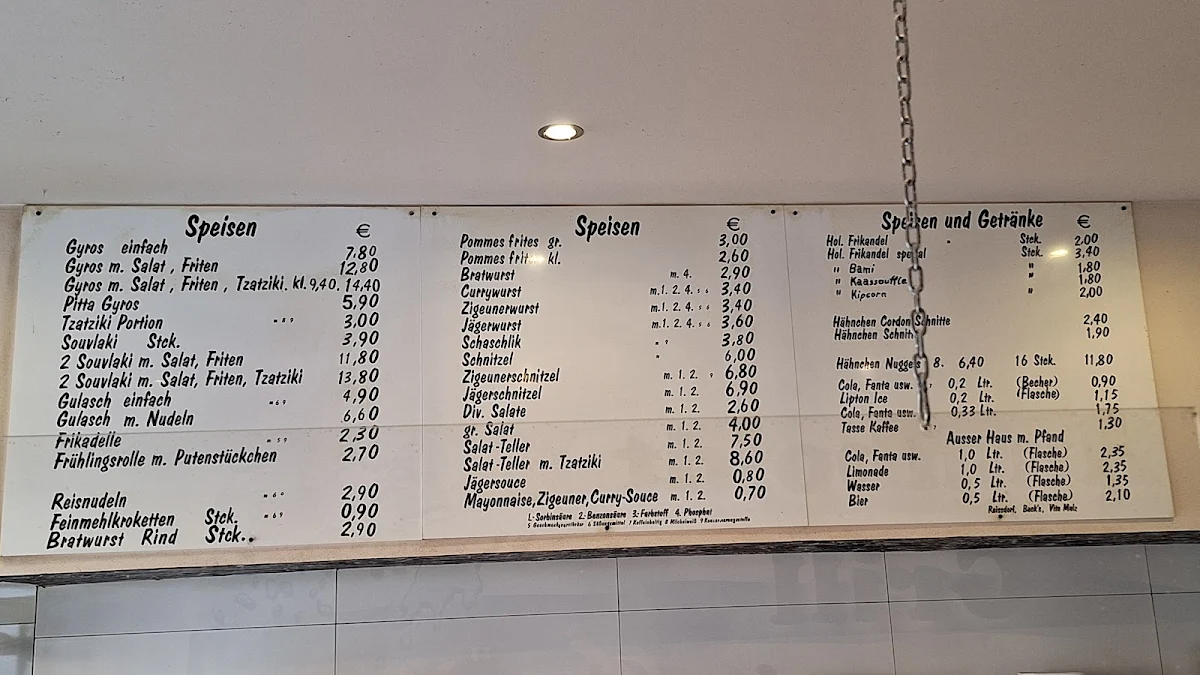 Speisen €
Gyros einfach 7,80
Gyros m. Salat, Friten 12,80
Gyros m. Salat, Friten, Tzatziki. kl. 9,40. 14,40
Pitta Gyros 5,90
Tzatziki Portion 3,00
Souvlaki Stck. 3,90
2 Souvlaki m. Salat, Friten 11,80
2 Souvlaki m. Salat, Friten, Tzatziki 13,80
Gulasch einfach 4,90
Gulasch m. Nudeln 6,60
Frikadelle 2,30
Frühlingsrolle m. Putenstückchen 2,70
Reisnudeln 2,90
Feinmehlkroketten Stck. 0,90
Bratwurst Rind Stck.. 2,90
Speisen €
Pommes frites gr. 3,00
Pommes frites kl. 2,60
Bratwurst m. 4. 2,90
Currywurst m.1. 2. 4. 5 6 3,40
Zigeunerwurst m.1. 2. 4. 5 6 3,40
Jägerwurst m.1. 2. 4. 5 6 3,60
Schaschlik 3,80
Schnitzel 6,00
Zigeunerschnitzel m. 1. 2. 9 6,80
Jägerschnitzel m. 1. 2. 6,90
Div. Salate m. 1. 2. 2,60
gr. Salat m. 1. 2. 4,00
Salat-Teller m. 1. 2. 7,50
Salat-Teller m. Tzatziki m. 1. 2. 8,60
Jägersouce m. 1. 2. 0,80
Mayonnaise,Zigeuner,Curry-Souce m. 1. 2. 0,70
1.-Sorbinsäure 2.-Benzonsäure 3.-Farbstoff 4. Phosphat
5 Geschmacksverstärker 6 Süssungsmittel 7 Koffeinhaltig 8 Milcheiweiß 9 Konservierungsstoffe
Speisen und Getränke €
Hol. Frikandel Stck. 2,00
Hol. Frikandel spezial Stck. 3,40
" Bami " 1,80
" Kaassouffle " 1,80
" Kipcorn " 2,00
Hähnchen Cordon Schnitte 2,40
Hähnchen Schnitte 1,90
Hähnchen Nuggets 8. 6,40 16 Stck. 11,80
Cola, Fanta usw. 0,2 Ltr. (Becher) 0,90
Lipton Ice 0,2 Ltr. (Flasche) 1,15
Cola, Fanta usw. 0,33 Ltr. 1,75
Tasse Kaffee 1,30
Ausser Haus m. Pfand
Cola, Fanta usw. 1,0 Ltr. (Flasche) 2,35
Limonade 1,0 Ltr. (Flasche) 2,35
Wasser 0,5 Ltr. (Flasche) 1,35
Bier 0,5 Ltr. (Flasche) 2,10
Reissdorf, Beck's, Vita Malz